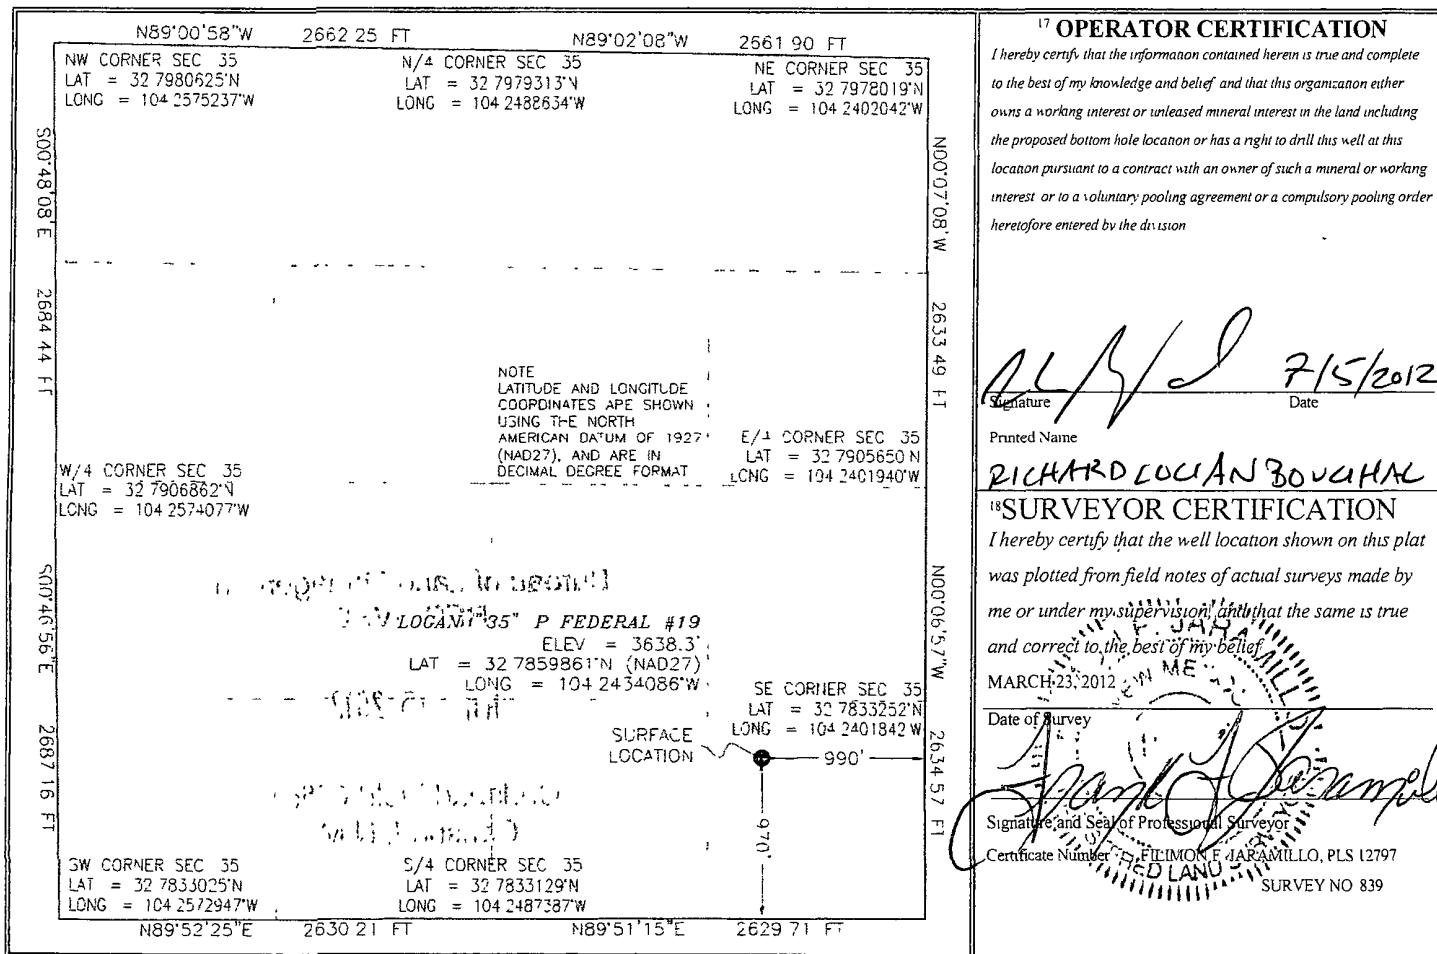 N89°00'58"W 2662 25 FT N89°02'08"W 2661 90 FT
NW CORNER SEC 35
LAT = 32 7980625°N
LONG = 104 2575237°W
N/4 CORNER SEC 35
LAT = 32 7979313°N
LONG = 104 2488634°W
NE CORNER SEC 35
LAT = 32 7978019°N
LONG = 104 2402042°W
S00°48'08"E 2684 44 FT
N00°07'08"W 2633 49 FT
NOTE
LATITUDE AND LONGITUDE
COORDINATES ARE SHOWN
USING THE NORTH
AMERICAN DATUM OF 1927
(NAD27), AND ARE IN
DECIMAL DEGREE FORMAT
W/4 CORNER SEC 35
LAT = 32 7906862°N
LONG = 104 2574077°W
E/4 CORNER SEC 35
LAT = 32 7905650 N
LONG = 104 2401940°W
S00°46'56"E 2687 16 FT
N00°06'57"W 2634 57 FT
LOGAN "35" P FEDERAL #19
ELEV = 3638.3'
LAT = 32 7859861°N (NAD27)
LONG = 104 2434086°W
SE CORNER SEC 35
LAT = 32 7833252°N
LONG = 104 2401842 W
SURFACE
LOCATION
990'
970'
SW CORNER SEC 35
LAT = 32 7833025°N
LONG = 104 2572947°W
S/4 CORNER SEC 35
LAT = 32 7833129°N
LONG = 104 2487387°W
N89°52'25"E 2630 21 FT N89°51'15"E 2629 71 FT
17 OPERATOR CERTIFICATION
I hereby certify that the information contained herein is true and complete
to the best of my knowledge and belief and that this organization either
owns a working interest or unleased mineral interest in the land including
the proposed bottom hole location or has a right to drill this well at this
location pursuant to a contract with an owner of such a mineral or working
interest or to a voluntary pooling agreement or a compulsory pooling order
heretofore entered by the division
7/5/2012
Signature Date
Printed Name
RICHARD LUCIAN BOUCHAL
18 SURVEYOR CERTIFICATION
I hereby certify that the well location shown on this plat
was plotted from field notes of actual surveys made by
me or under my supervision, and that the same is true
and correct to the best of my belief
MARCH 23, 2012
Date of Survey
Signature and Seal of Professional Surveyor
Certificate Number FILIMON F JARAMILLO, PLS 12797
SURVEY NO 839